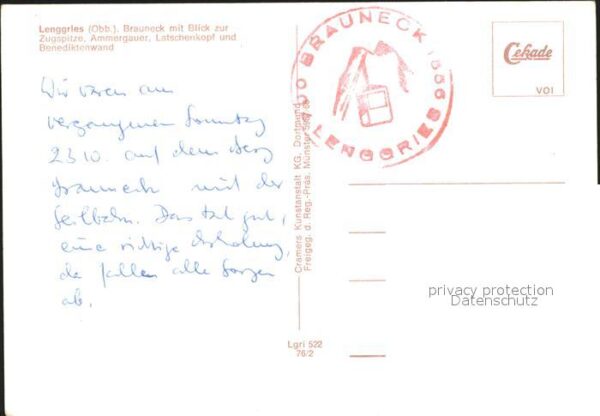 Lenggries (Obb.). Brauneck mit Blick zur
Zugspitze, Ammergauer, Latschenkopf und
Benediktenwand
Wir waren am
vergangenen Sonntag
23.10. auf dem Berg
Brauneck mit der
Seilbahn. Das tat gut,
eine richtige Erholung,
da fallen alle Sorgen
ab.
Cramers Kunstanstalt KG, Dortmund
Freigeg. d. Reg.-Präs. Münster
Lgri 522
76/2
BRAUNECK 1556
LENGGRIES
Cekade
VOI
privacy protection
Datenschutz